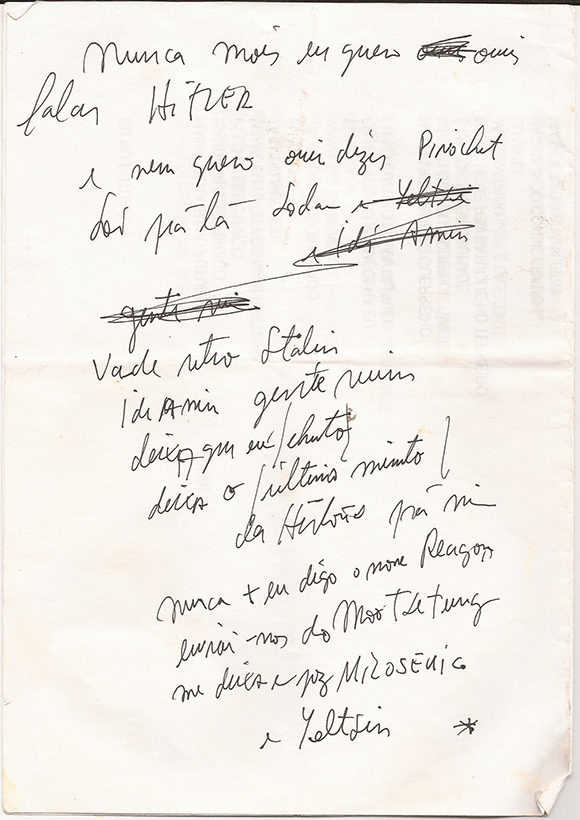 nunca mais eu quero ouvir
falar HiTLER
e nem quero ouvir dizer Pinochet
Sai prá lá Sadan e Yeltsin
e Idi Amin
gente ruim
Vade retro Stálin
Idi Amin gente ruim
deixa que eu / chuto /
deixa o / último minuto /
da História prá mim
nunca + eu digo o nome Reagan
livrai-nos do Mao Tsetung
me deixa e paz MILOSEVIC
e Yeltsin *